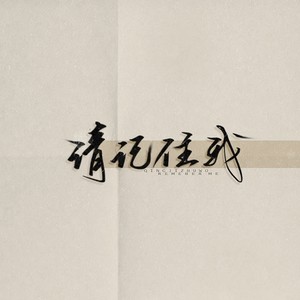 请记住我
QINGJIZHUWO
REMEMBER ME